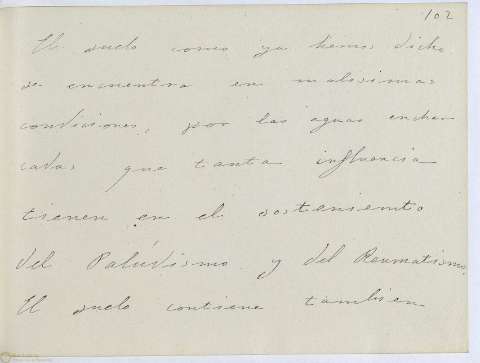 102
El suelo como ya hemos dicho
se encuentra en malisimas
condiciones, por las aguas enchar
cadas que tanta influencia
tienen en el sostenimiento
del Paludismo y del Reumatismo.
El suelo contiene tambien